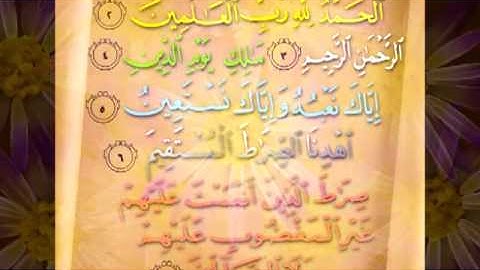 الْحَمْدُ لِلَّهِ رَبِّ الْعَالَمِينَ ٢
الرَّحْمَٰنِ الرَّحِيمِ ٣ مَلِكِ يَوْمِ الدِّينِ ٤
إِيَّاكَ نَعْبُدُ وَإِيَّاكَ نَسْتَعِينُ ٥
اهْدِنَا الصِّرَاطَ الْمُسْتَقِيمَ ٦
صِرَاطَ الَّذِينَ أَنْعَمْتَ عَلَيْهِمْ
غَيْرِ الْمَغْضُوبِ عَلَيْهِمْ